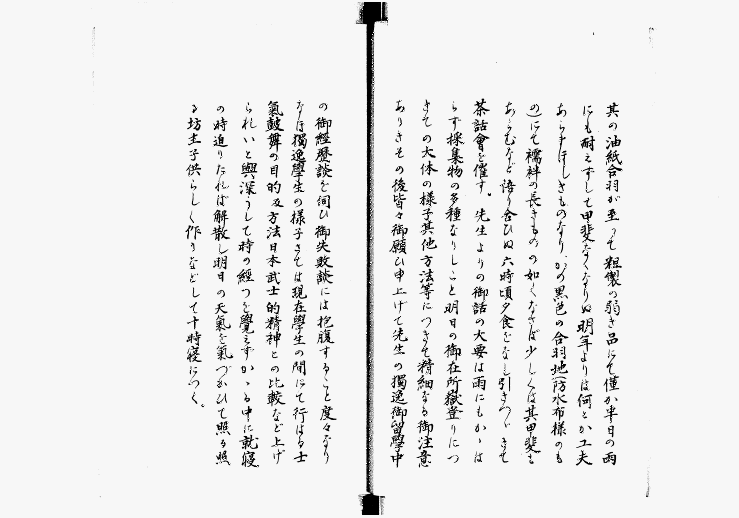 其の油紙合羽が至つて粗製の弱き品にて僅か半日の雨
にも耐えずして甲斐なくなりぬ明年よりは何とか工夫
あらまほしきものなり、かの黒色の合羽地(防水布様のも
の)にて襦袢の長きものの如くなさば少しくは其甲斐も
あらむなど語り合ひぬ六時頃夕食をなし引きつゞきて
茶話會を催す。先生よりの御話の大要は雨にもかゝは
らず採集物の多種なりしこと明日の御在所嶽登りにつ
きての大体の様子其他方法等につきて精細なる御注意
ありきその後皆々御願ひ申上げて先生の獨逸御留學中
の御經歴談を伺ひ御失敗談には抱腹すること度々なり
なほ獨逸學生の様子さては現在學生の間にて行はる士
氣鼓舞の目的及方法日本武士的精神との比較など上げ
られいと興深うして時の經つを覺えずかゝる中に就寝
の時迫りたれば解散し明日の天氣を氣づかひて照る照
る坊主子供らしく作りなどして十時寝につく。